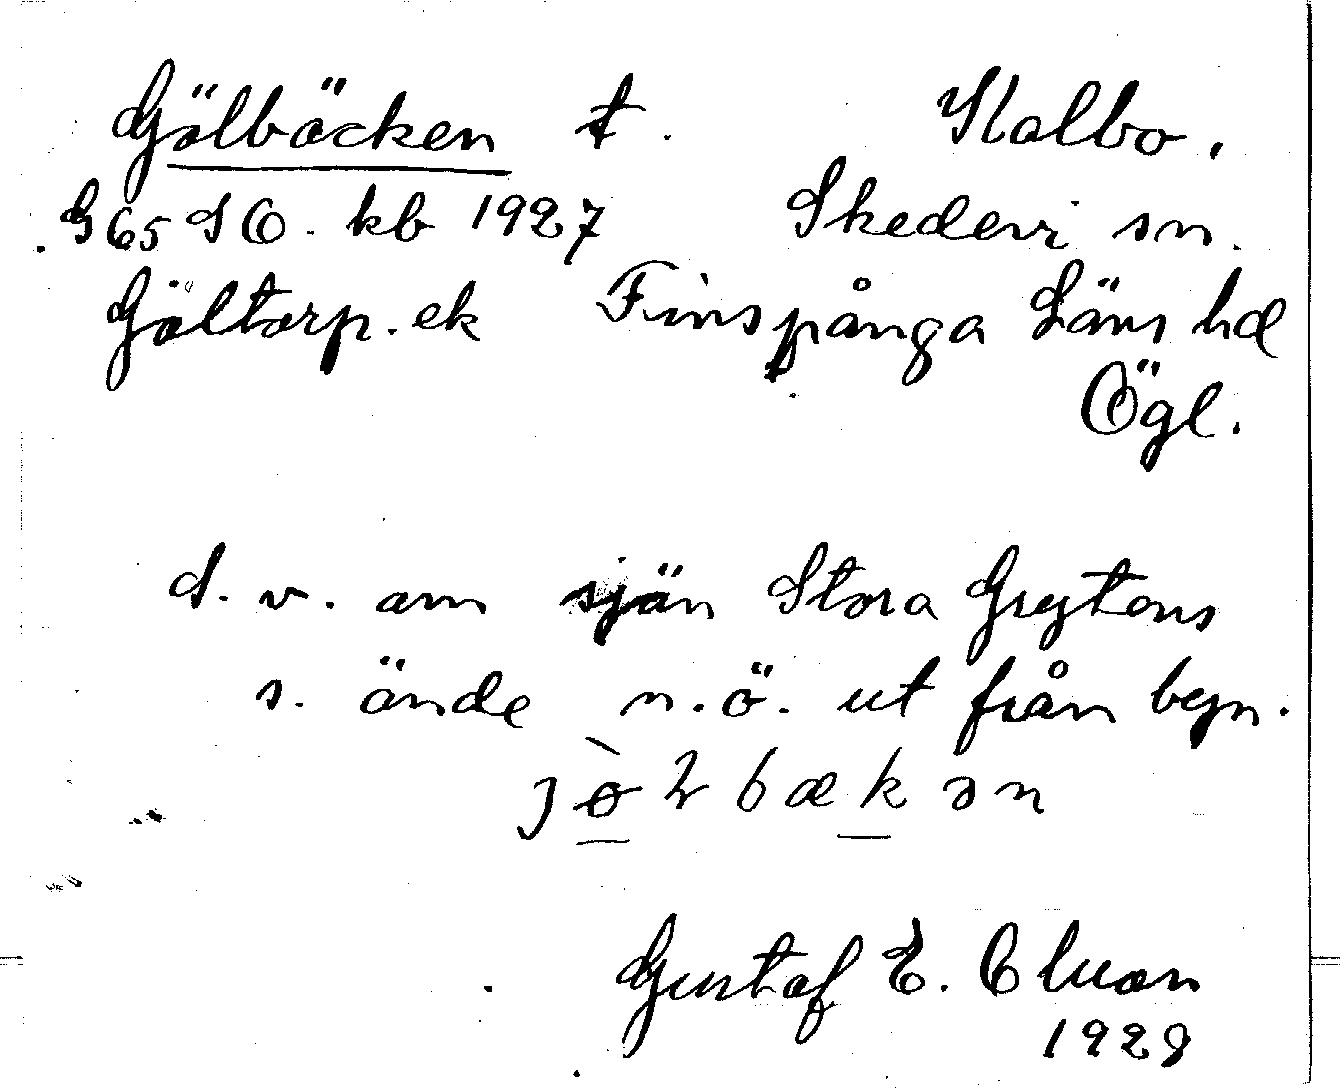 Gölbäcken t. Kalbo.
G 65 SO. kb 1927 Skedevi sn.
Göltorp. ek Finspånga Läns hd
Ögl.
S. v. om sjön Stora Grytens
s. ände n.ö. ut från begn.
jölbækən
Gustaf E.
1928